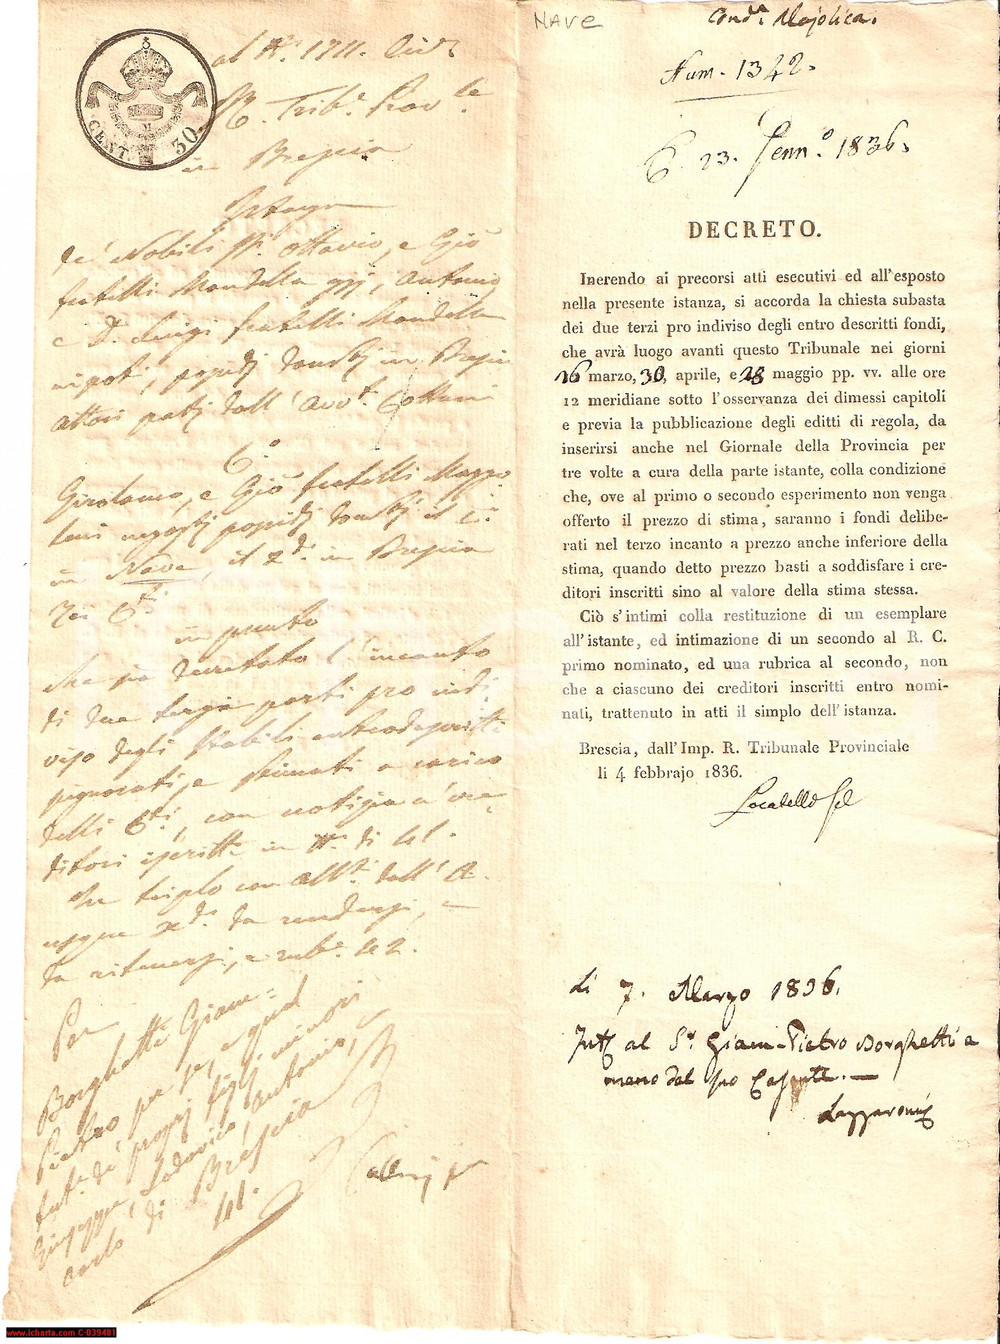 CENT. 30
al N.º 1711. Civ.
R. Trib.e Prov.le
in Brescia
Istanza
de' Nobili SS.ri Ottavio, e Gio
fratelli Mondella Antonio
e D.r Luigi fratelli Mondella
nipoti, possid.i Brescia
attori dall' Avv.º
C.º
Girolamo, e Giõ fratelli Mazzo
possid.i il 1.º
in Nave, il 2.do in Brescia
Rei C.ti
in punto
che sia decretato l'incanto
di due terze parti pro indi
viso degli stabili
pignorati, e stimati a carico
delli C.ti, con notizia a' cre-
ditori iscritti in N.º di 41.
che triplo con all.ti dall' A.
da rendersi,
da ritenersi, e rub.e 42.
Per
Borghetti Giam-
Pietro per se, e qual
tut.e de' proprj figli minori
Giuseppe, Lodovico, Antonio,
Carlo di Brescia
41.
NAVE
Cond.a Majolica.
Num. 1342.
C. 23. Genn.º 1836.
DECRETO.
Inerendo ai precorsi atti esecutivi ed all'esposto
nella presente istanza, si accorda la chiesta subasta
dei due terzi pro indiviso degli entro descritti fondi,
che avrà luogo avanti questo Tribunale nei giorni
16 marzo, 30, aprile, e 28 maggio pp. vv. alle ore
12 meridiane sotto l'osservanza dei dimessi capitoli
e previa la pubblicazione degli editti di regola, da
inserirsi anche nel Giornale della Provincia per
tre volte a cura della parte istante, colla condizione
che, ove al primo o secondo esperimento non venga
offerto il prezzo di stima, saranno i fondi delibe-
rati nel terzo incanto a prezzo anche inferiore della
stima, quando detto prezzo basti a soddisfare i cre-
ditori inscritti sino al valore della stima stessa.
Ciò s'intimi colla restituzione di un esemplare
all'istante, ed intimazione di un secondo al R. C.
primo nominato, ed una rubrica al secondo, non
che a ciascuno dei creditori inscritti entro nomi-
nati, trattenuto in atti il simplo dell'istanza.
Brescia, dall'Imp. R. Tribunale Provinciale
li 4 febbrajo 1836.
Locatello
Li 7. Marzo 1836.
al S.r Giam-Pietro Borghetti a
mano del suo
Lazzaroni
www.icharta.com C-039481